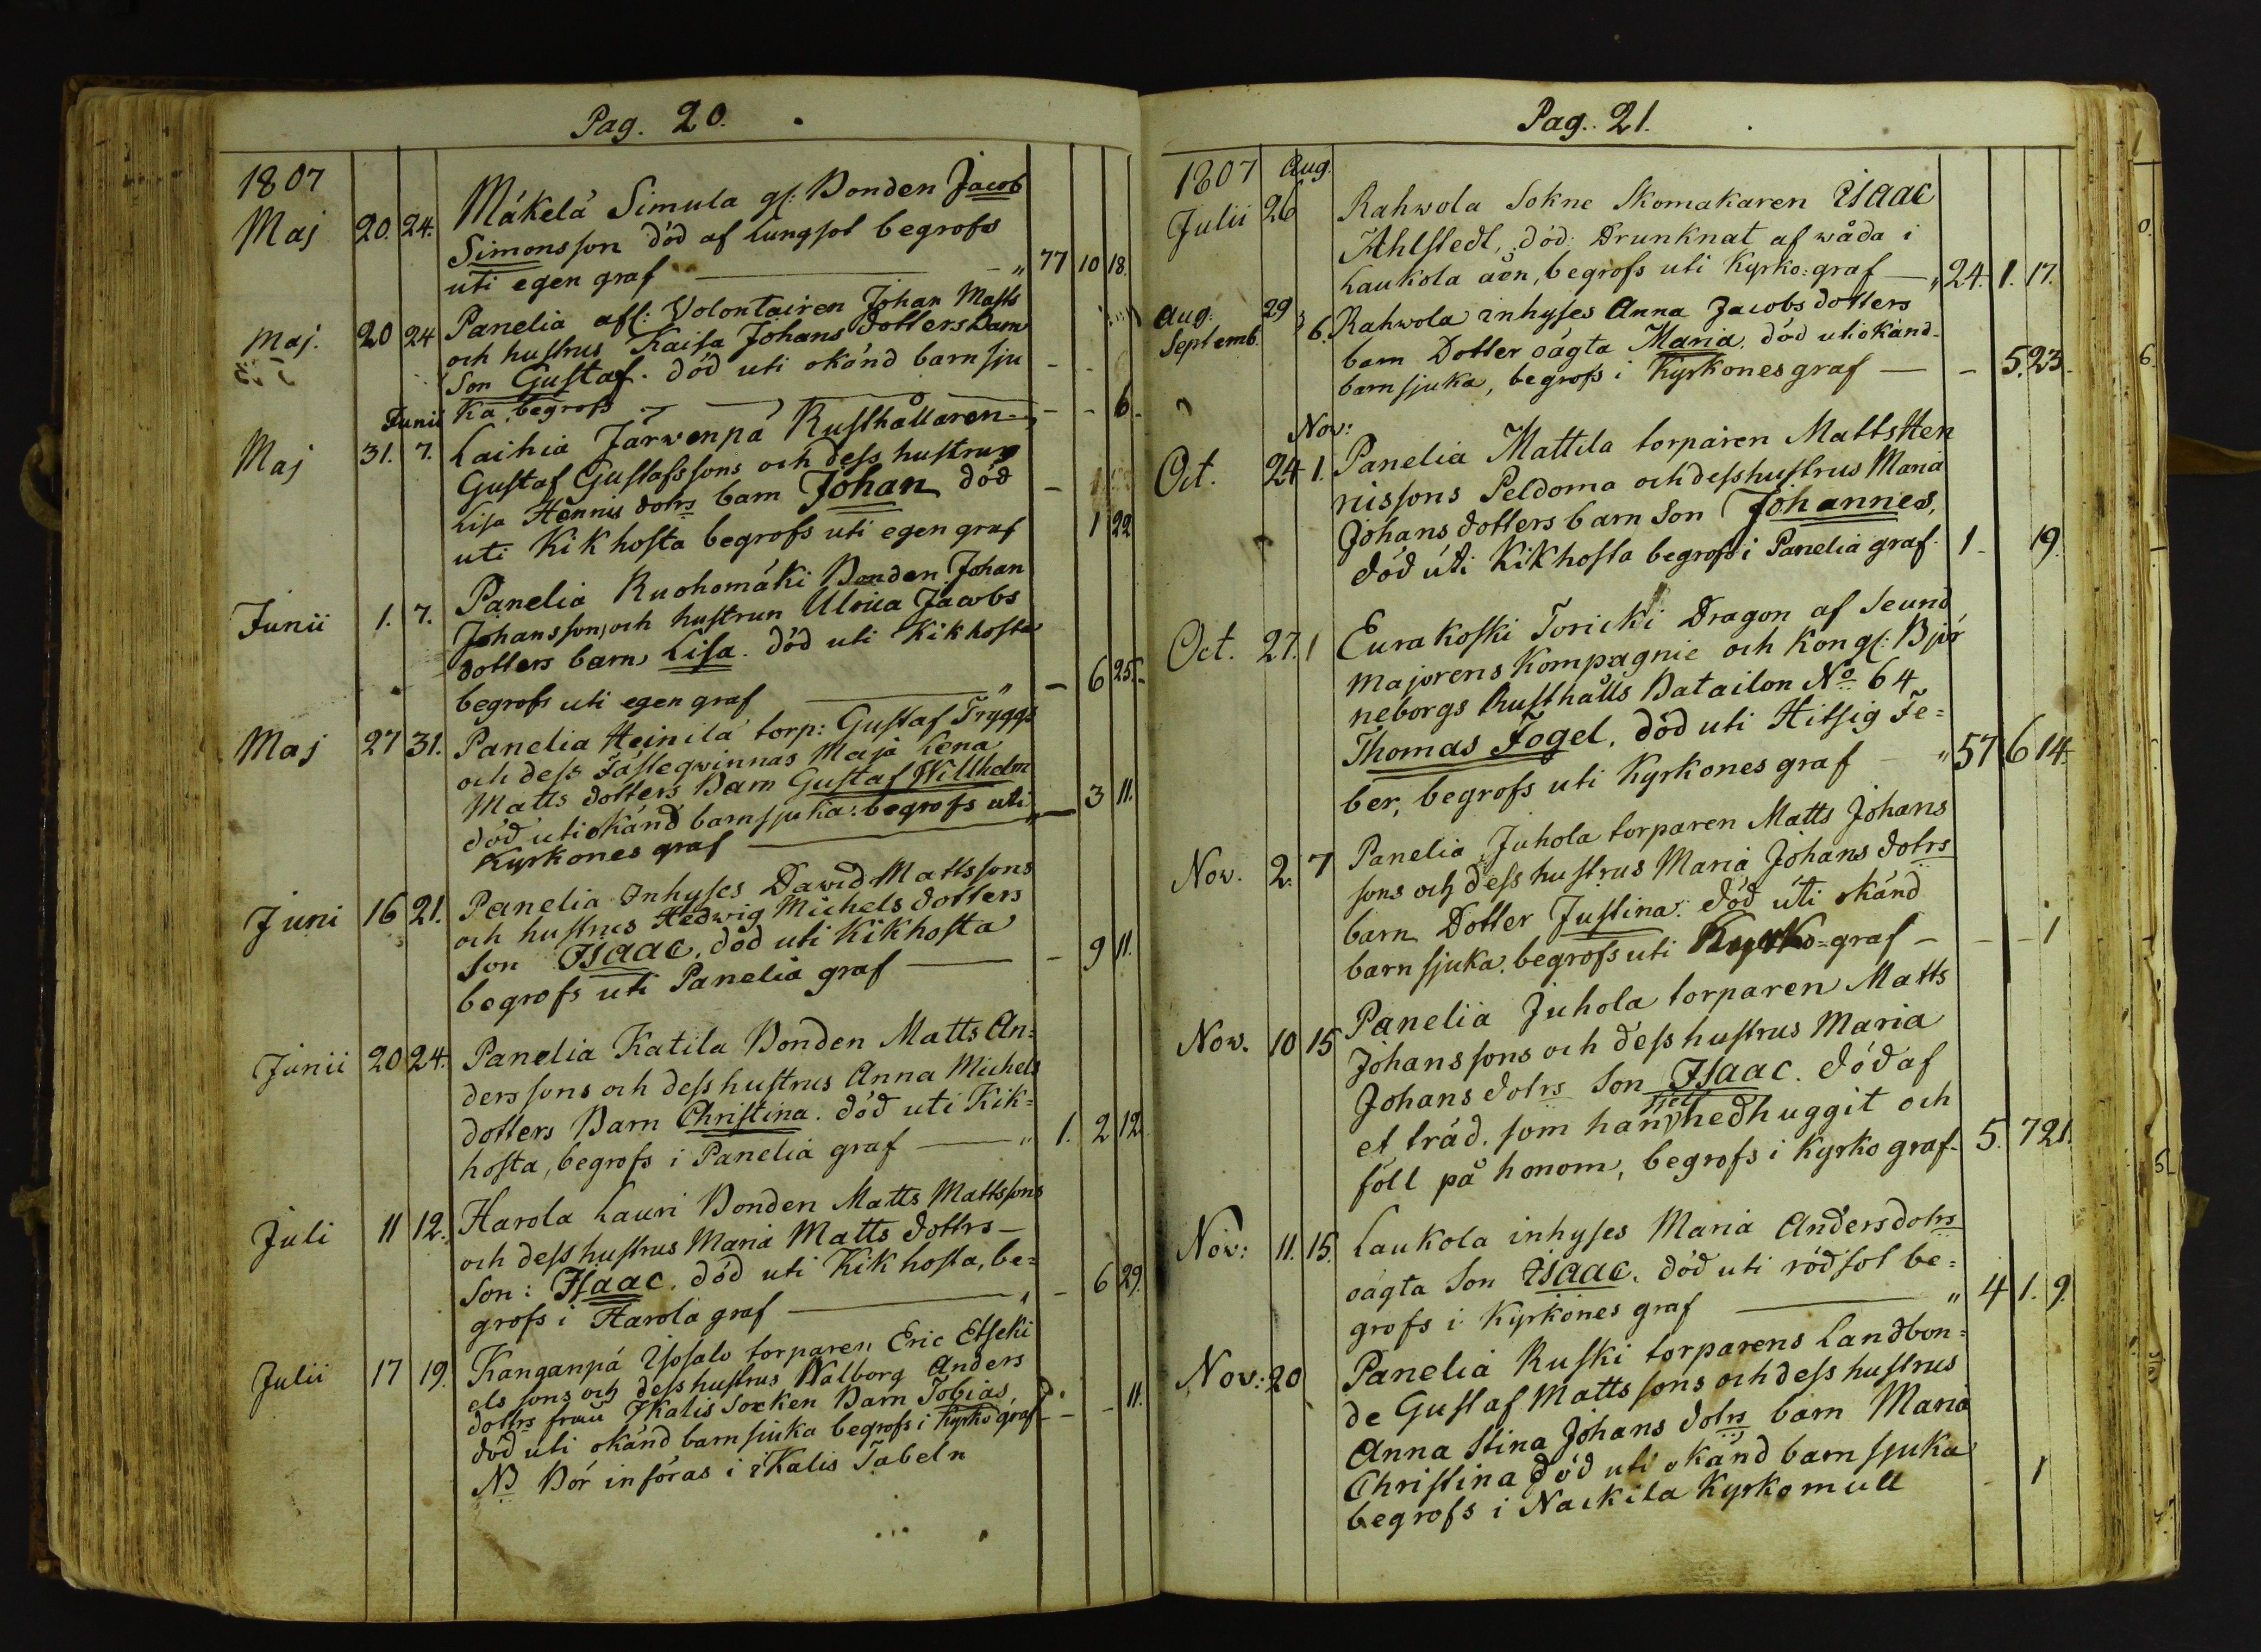 Pag. 20.
1807
Maj 20. 24. Mäkelä Simula gl: Bonden Jacob
Simonsson död af Lungsot begrofs
uti egen graf — " 77 10 18.
Maj. 20 24 Panelia afl: Volontairen Johan Matts
och hustrus Kaisa Johans dotters Barn
Son Gustaf. död uti okänd barnsju
ka, begrofs — - - 6.
Junii
Maj 31. 7. Laihia Järwenpä Rusthållaren
Gustaf Gustafssons och dess hustrus
Lisa Hennis dotrs barn Johan död
uti Kikhosta begrofs uti egen graf - 1 22
Junii 1. 7. Panelia Ruohomäki Bonden Johan
Johansson, och hustrun Ulrica Jacobs
dotters barn, Lisa. död uti Kikhosta
begrofs uti egen graf — " - 6 25.
Maj 27 31. Panelia Heinilä torp: Gustaf Tryggs
och dess Fästeqwinnas Maja Lena
Matts dotters Barn Gustaf Willhelm
död uti okänd barnsjuka: begrofs uti
Kyrkones graf — " - 3 11.
Juni 16 21. Panelia Inhyses Dawid Mattssons
och hustrus Hedwig Michels dotters
Son Isaac, död uti Kikhosta
begrofs uti Panelia graf — - 9 11.
Junii 20 24. Panelia Katila Bonden Matts An=
derssons och dess hustrus Anna Michels
dotters Barn Christina. död uti Kik=
hosta, begrofs i Panelia graf — " 1. 2 12
Juli 11 12. Harola Lauri Bonden Matts Mattssons
och dess hustrus Maria Matts dottrs —
Son: Isaac. död uti Kikhosta, be=
grofs i Harola graf — " - 6 29.
Julii 17 19. Kanganpä Ysosalo torparen Eric Etseki
els sons och dess hustrus Walborg Anders
dottrs från Ikalis Socken Barn Tobias,
död uti okänd barnsjuka begrofs i Kyrko graf - - 11.
NB Bör införas i Ikalis Tabeln
Pag. 21.
1807 Aug.
Julii 26 Rahwola Sokne Skomakaren Isaac
Ahlstedt, död: Drunknat af wåda i
Laukola åen, begrofs uti Kyrko=graf — " 24. 1. 17.
Aug: 29
Septemb. 6. Rahwola inhyses Anna Jacobs dotters
barn Dotter oägta Maria. död uti okänd
barnsjuka, begrofs i Kyrkones graf — - 5. 23.
Nov:
Oct. 24 1. Panelia Mattila torparen Matts Hen
nissons Peldoma och dess hustrus Maria
Johans dotters barn Son Johannes,
död uti Kikhosta begrofs i Panelia graf. 1 - 19.
Oct. 27. 1 Eurakoski Toricki Dragon af Secund
Majorens Kompagnie och Kongl: Biör
neborgs Rusthålls Batailon No 64
Thomas Fogel. död uti Hitsig Fe=
ber, begrofs uti Kyrkones graf — " 57 6 14
Nov. 2. 7 Panelia, Juhola torparen Matts Johans
sons och dess hustrus Maria Johans dotrs
barn Dotter Justina: död uti okänd
barnsjuka. begrofs uti Kyrko=graf — - - 1
Nov. 10 15 Panelia Juhola torparen Matts
Johanssons och dess hustrus Maria
Johans dotrs Son Isaac. död af
et träd. som han sjelf nedhuggit och
föll på honom, begrofs i Kyrko graf. 5. 7 21.
Nov: 11. 15. Laukola inhyses Maria Anders dotrs
oägta Son Isaac. död uti rödsot be=
grofs i Kyrkones graf — " 4 1. 9.
Nov: 20 Panelia Ruski torparens Landbon=
de Gustaf Mattssons och dess hustrus
Anna Stina Johans dotrs barn Maria
Christina död uti okänd barnsjuka
begrofs i Nackila Kyrkomull - 1